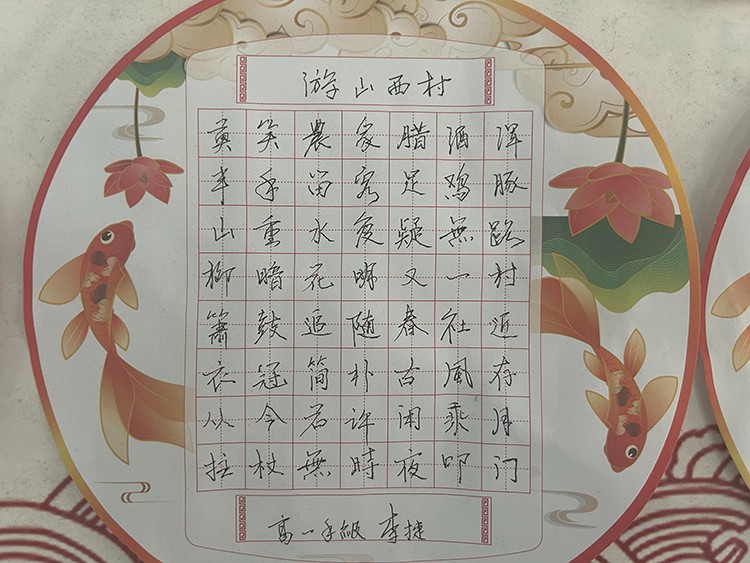 游山西村
莫笑農家腊酒浑
丰年留客足鸡豚
山重水复疑無路
柳暗花明又一村
簫鼓追随春社近
衣冠简朴古風存
从今若许闲乘月
拄杖無時夜叩门
高一年級 李捷